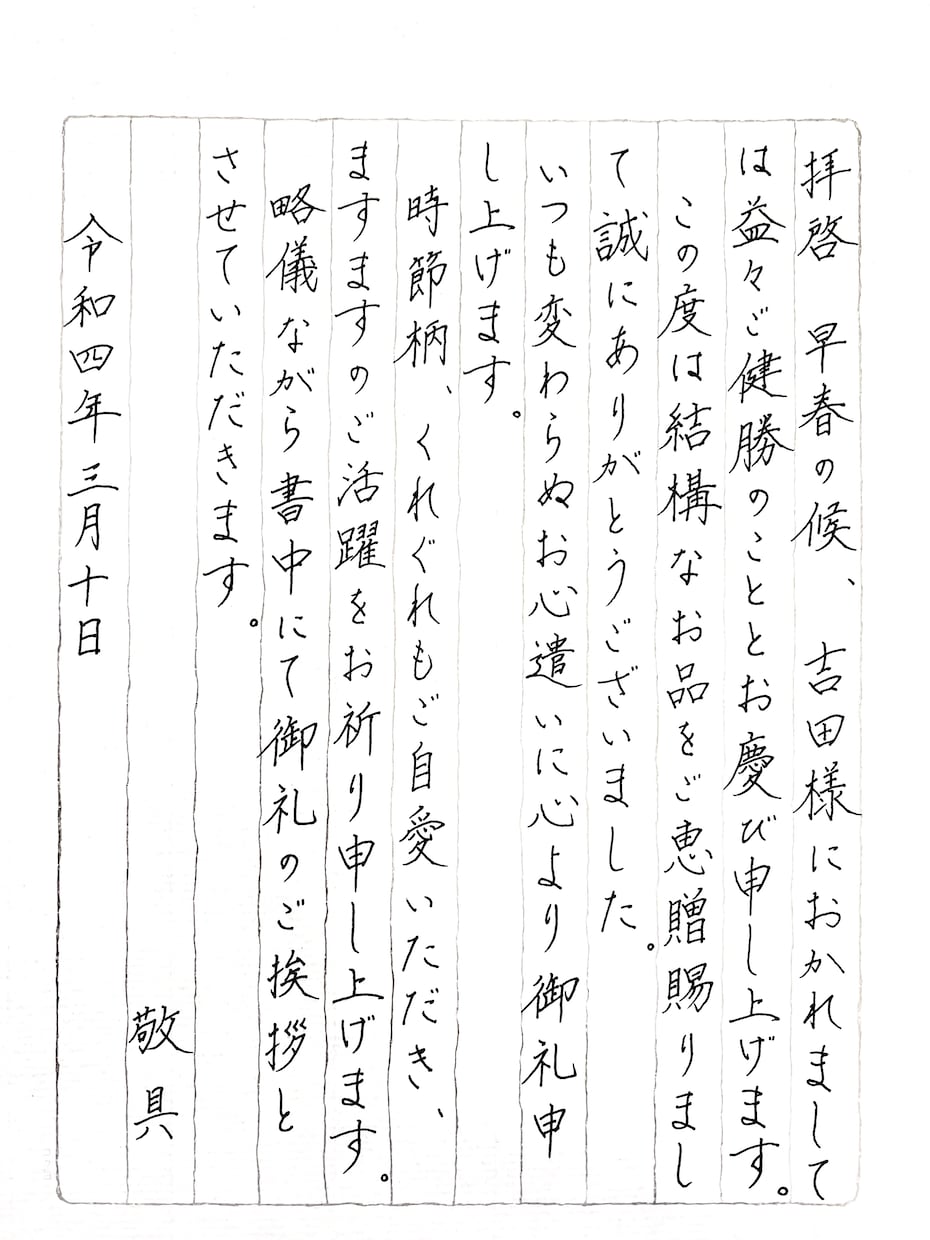 拝啓　早春の候、　吉田様におかれまして
は益々ご健勝のこととお慶び申し上げます。
この度は結構なお品をご恵贈賜りまし
て誠にありがとうございました。
いつも変わらぬお心遣いに心より御礼申
し上げます。
時節柄、くれぐれもご自愛いただき、
ますますのご活躍をお祈り申し上げます。
略儀ながら書中にて御礼のご挨拶と
させていただきます。
敬具
令和四年三月十日